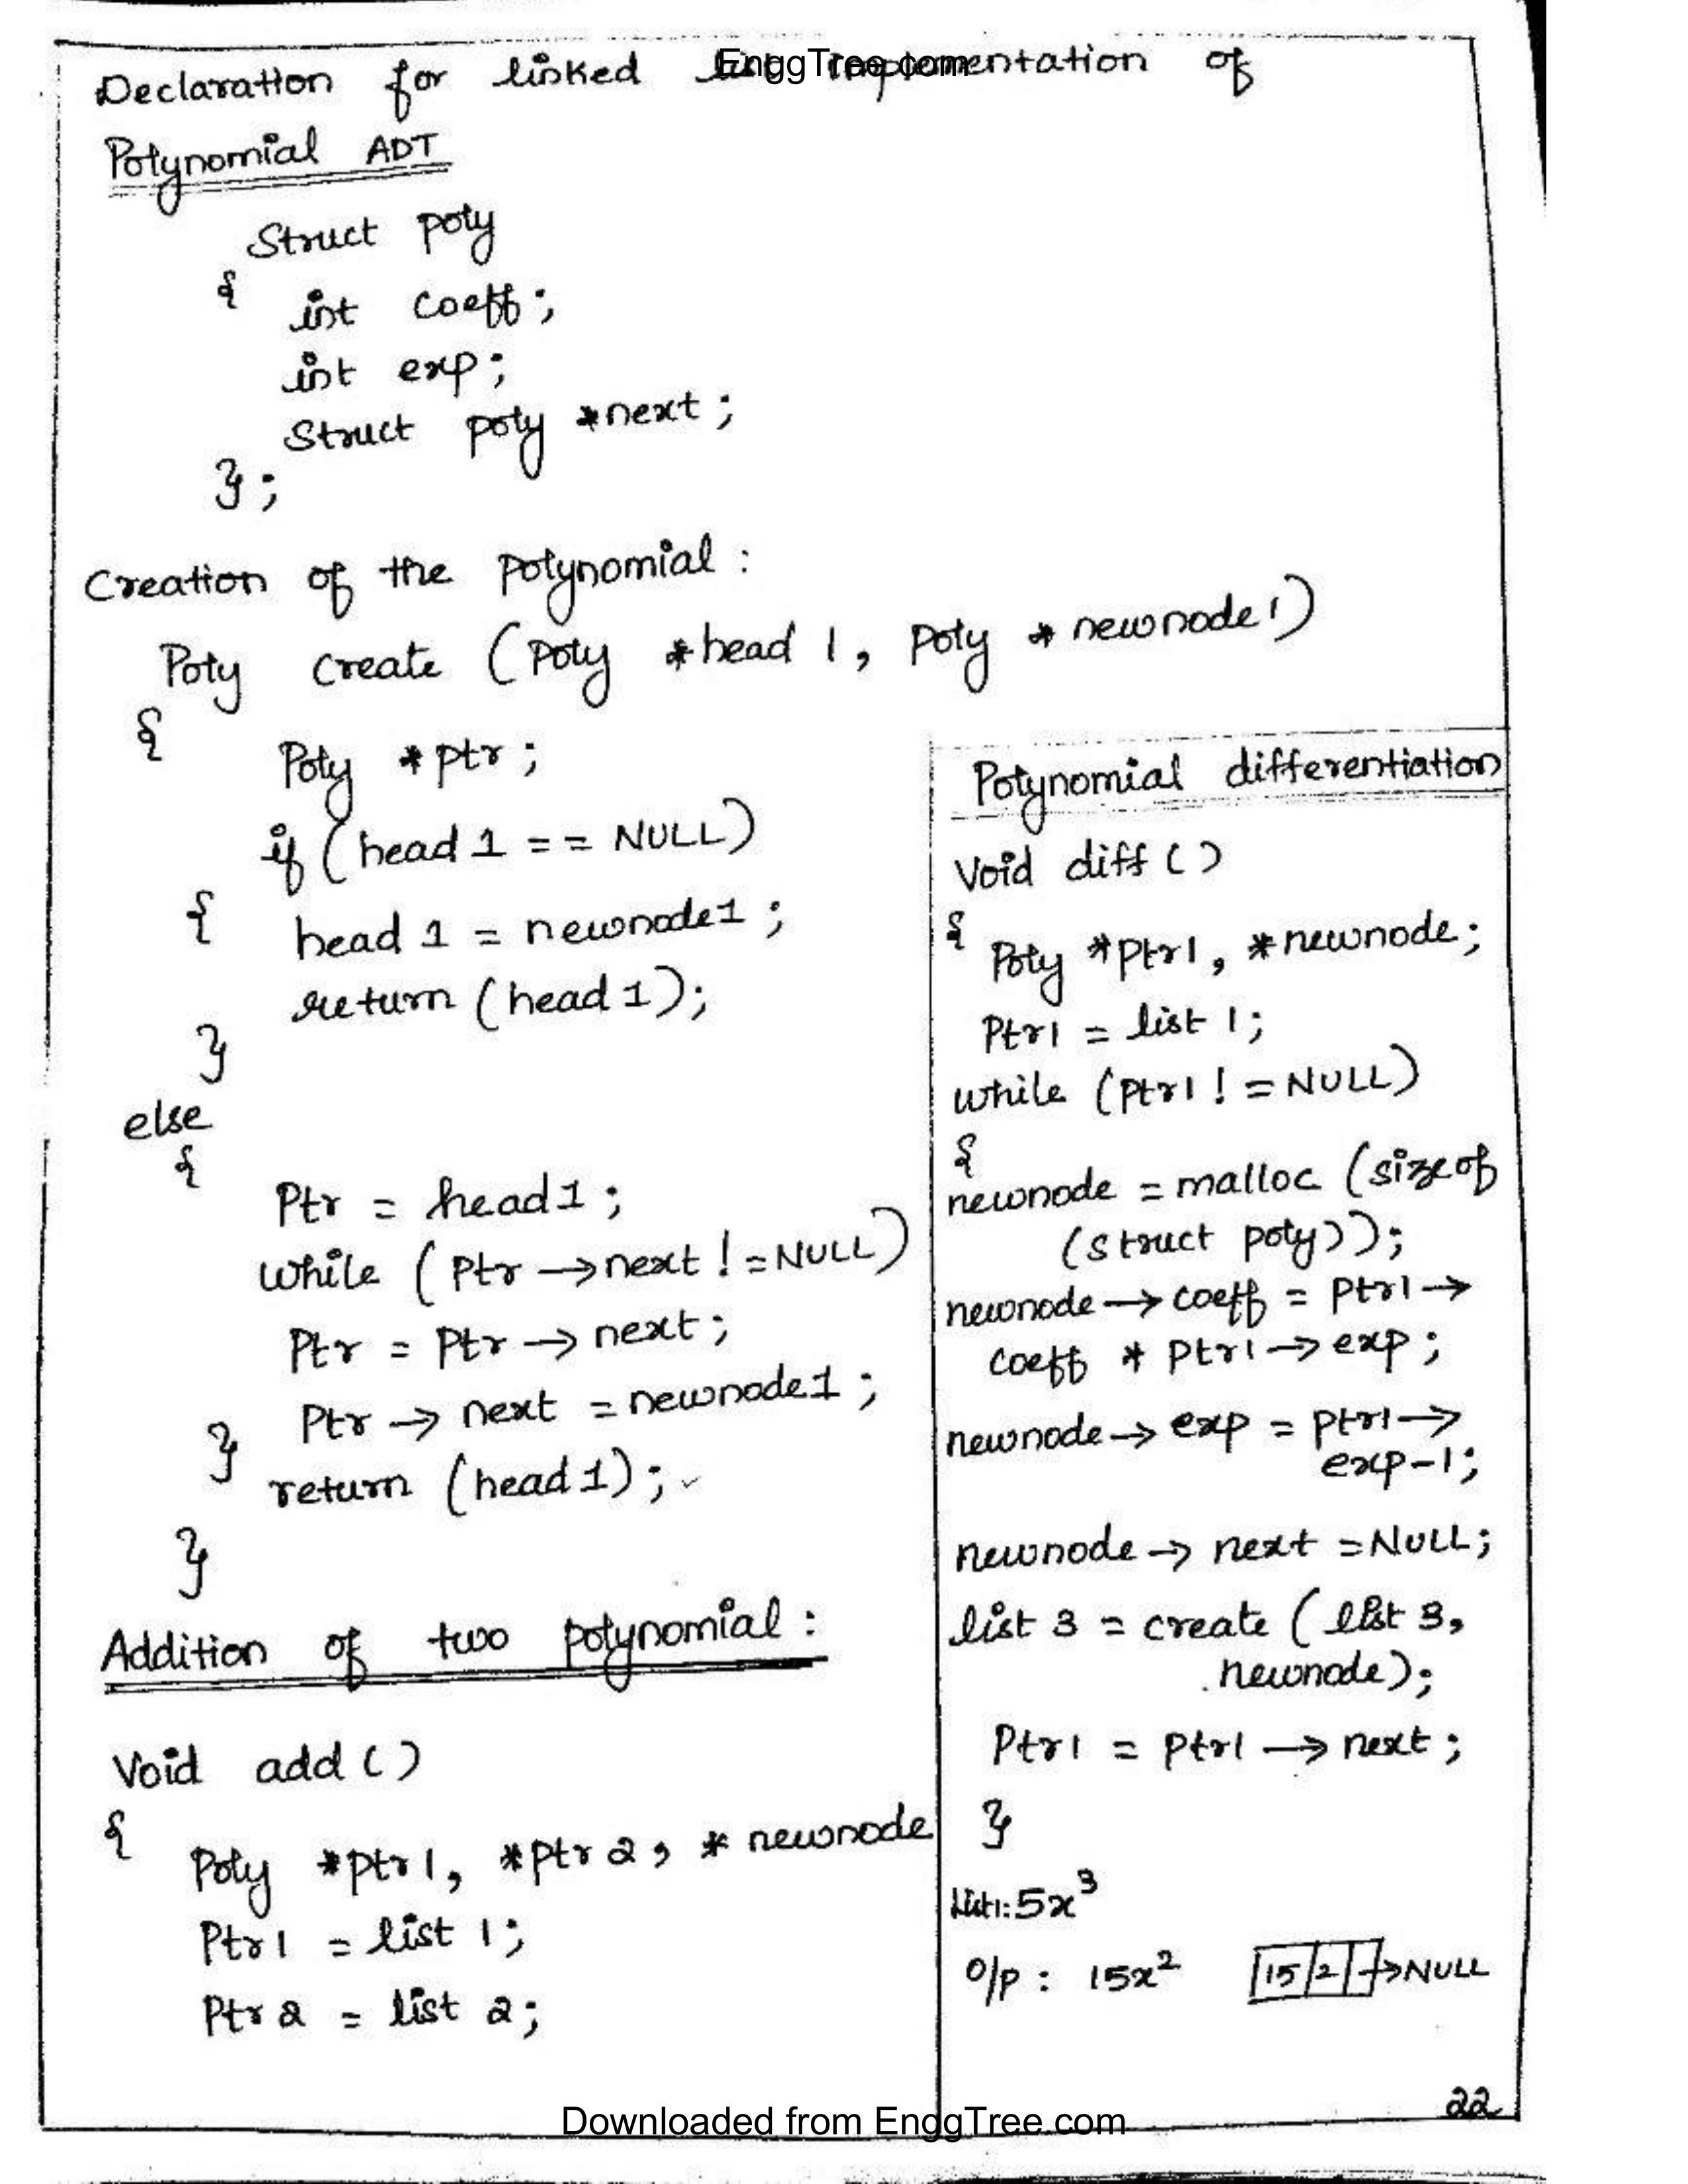 EnggTree.com
Declaration for linked list implementation of
Polynomial ADT
Struct poly
{ int coeff;
int exp;
Struct poly *next;
};
Creation of the polynomial :
Poly create (Poly *head 1, poly * newnode1)
{
Poly *ptr;
if (head 1 = = NULL)
{ head 1 = newnode1;
return (head 1);
}
else
{
Ptr = head1;
while (Ptr → next != NULL)
Ptr = Ptr → next;
Ptr → next = newnode1;
} return (head 1);
}
Addition of two polynomial :
Void add ( )
{ Poly *ptr1, *ptr 2, * newnode
Ptr1 = list 1;
Ptr 2 = list 2;
Polynomial differentiation
Void diff ( )
{ Poly *ptr1, *newnode;
Ptr1 = list 1;
while (Ptr1 != NULL)
{
newnode = malloc (sizeof
(struct poly));
newnode → coeff = Ptr1 →
coeff * Ptr1 → exp;
newnode → exp = ptr1 →
exp-1;
newnode → next = NULL;
list 3 = create (list 3,
newnode);
Ptr1 = ptr1 → next;
}
List1: 5x³
O/p : 15x² 15 2 → NULL
22
Downloaded from EnggTree.com